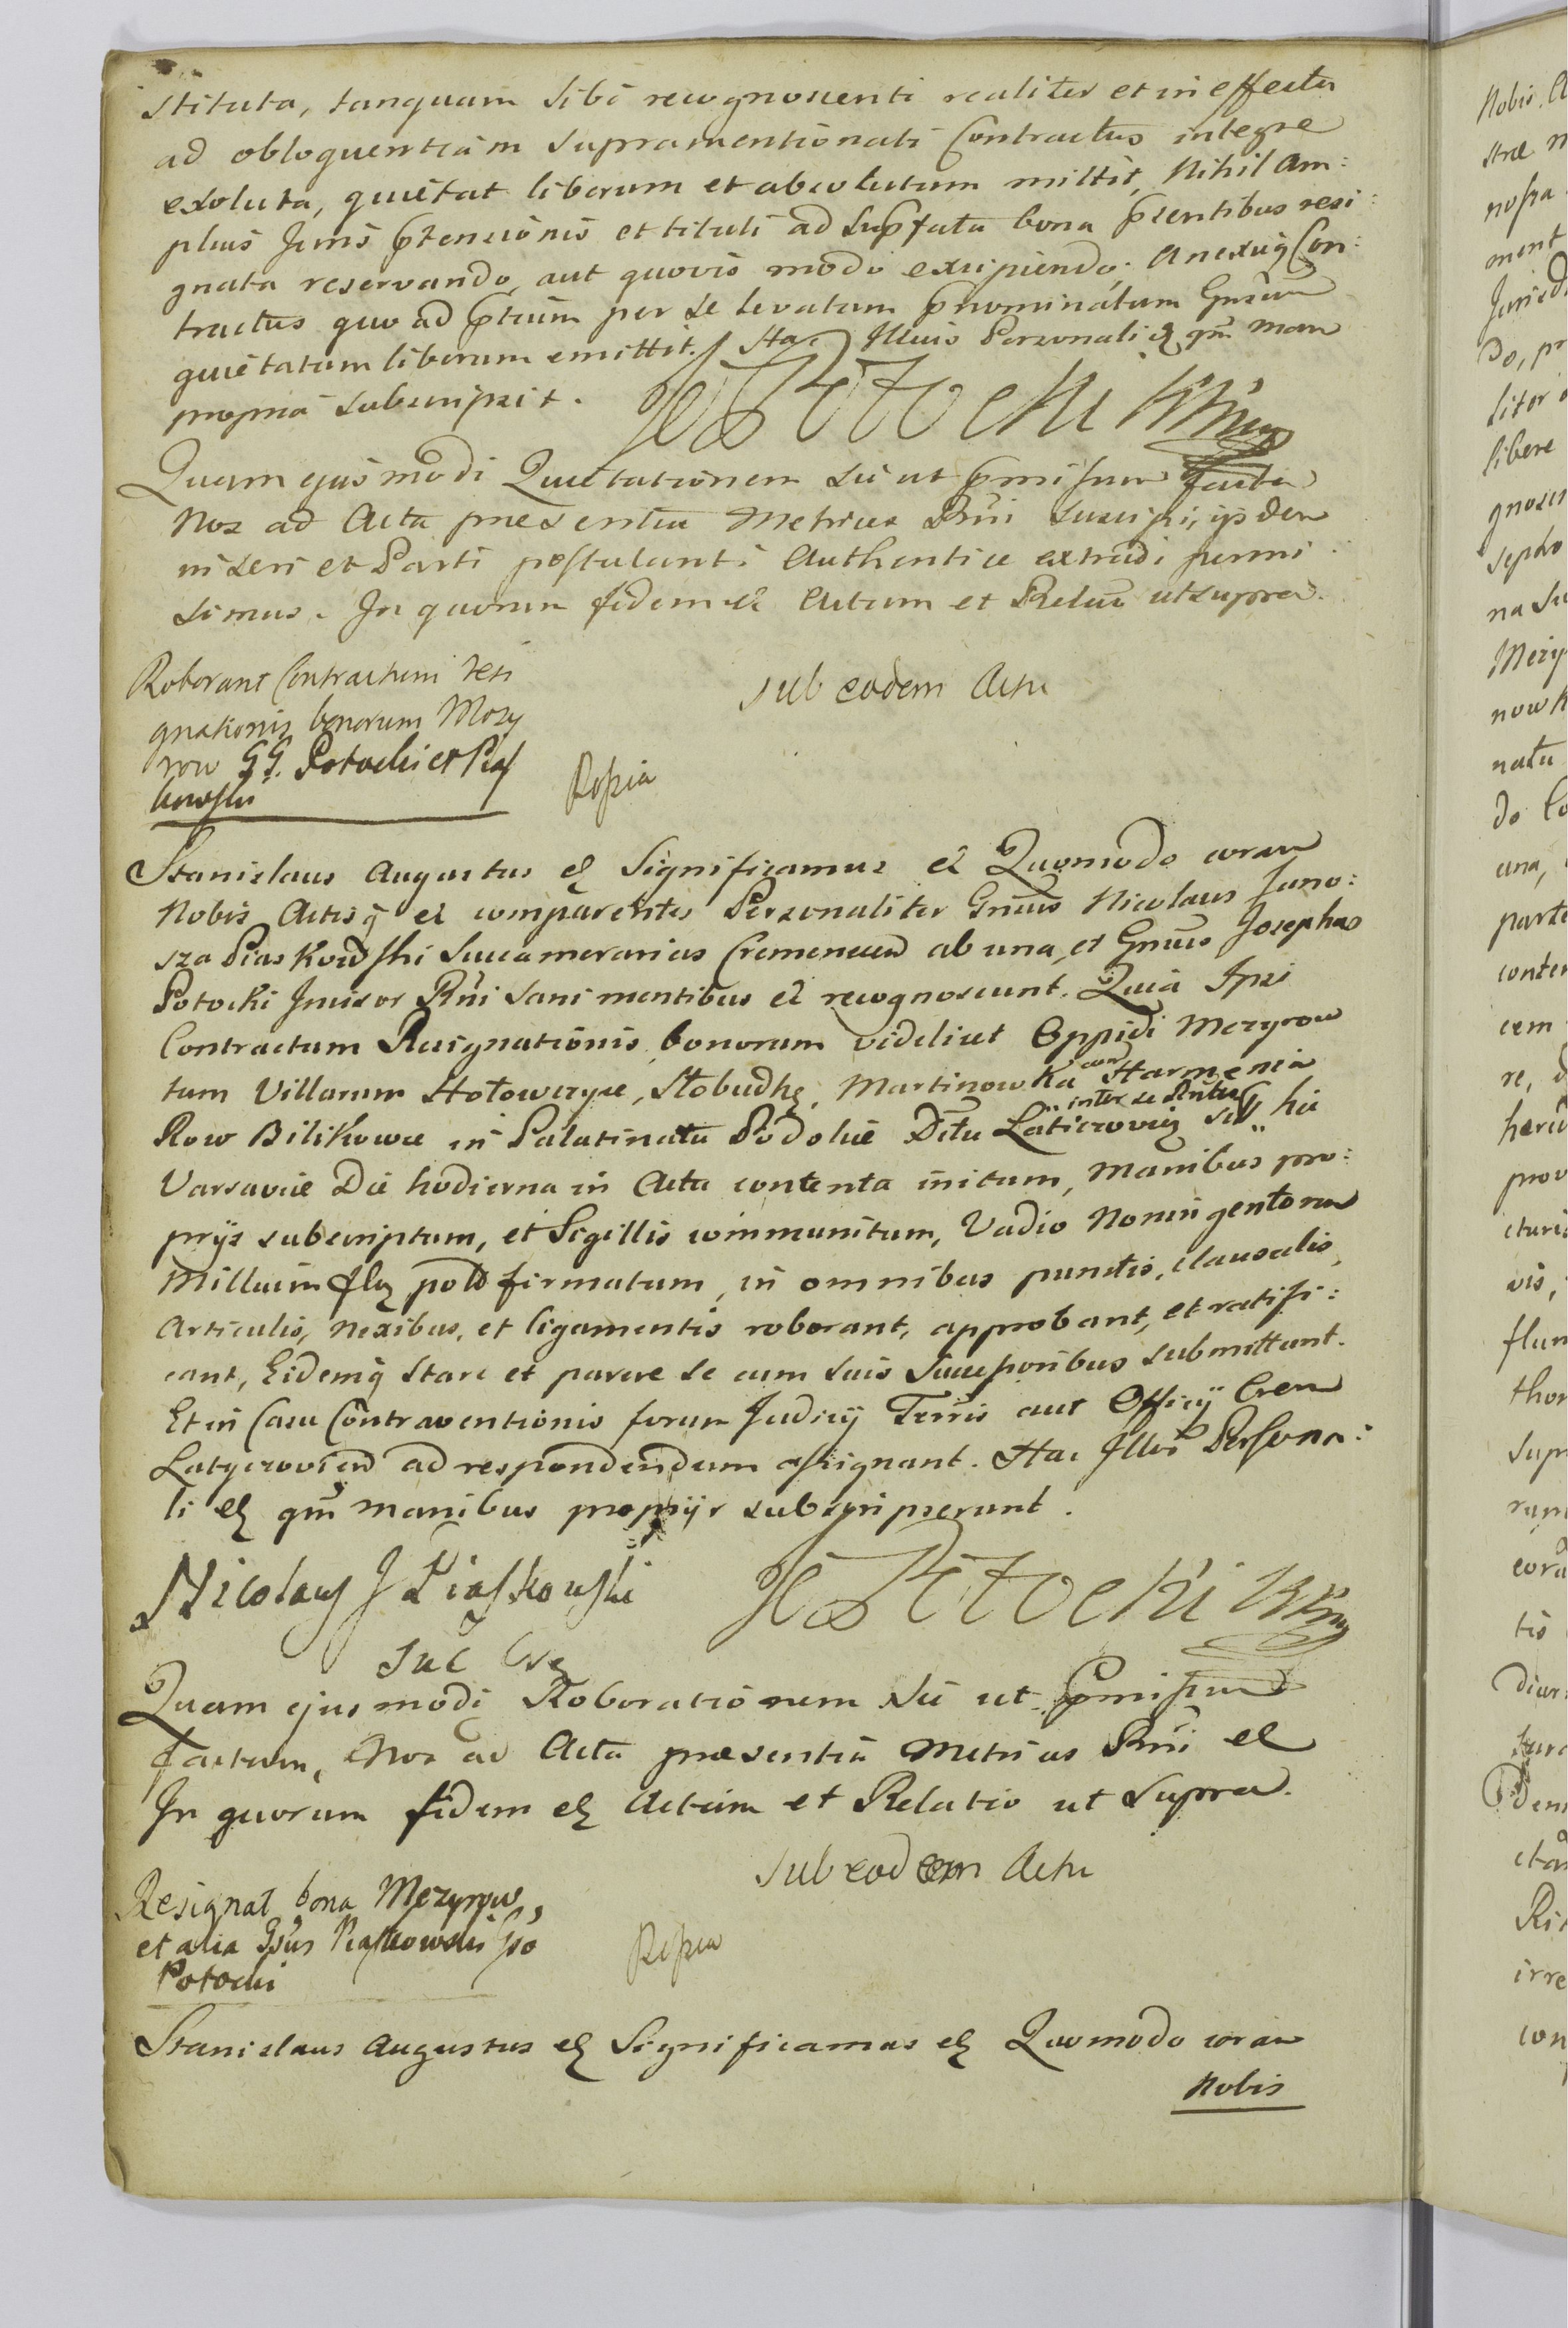 stituta, tanquam sibi recognoscenti realiter et in effectu
ad obloquentiam supramentionati Contractus integre
exoluta, quietat liberum et absolutum mittit, Nihil am:
plius Juris p̃tensionis et tituli ad supfata bona p̃sentibus resi:
gnata reservando, aut quovis modo excipiendo. Anexuq̃ Con:
tractus quo ad p̃tium per se levatum p̃nominatum Gnsum
quietatum liberum emittit. Hac Illius Personali eꝫ qm̃ manu
propria subscripsit. Potocki
Quam ejusmodi Quietationem sic ut p̃missum facta
Nos ad Acta praesentia Metrices Rni suscipi, ijsdem
inseri et Parti postulanti Authentice extradi permi
simus. In quorum fidem eꝫ Actum et Relatũ ut supra.
Roborant Contractum resi
gnationis bonorum Mezy
row GG. Potocki et Pias
kowski
sub eodem Actu
Rpsia
Stanislaus Augustus eꝫ Significamus eꝫ Quomodo coram
Nobis Actisq̃ eꝫ comparentes Personaliter Gnsus Nicolaus Juno:
sza Piaskowski Succamerarius Cremenecen ab una, et Gnsus Josephus
Potocki Incisor Rni sani mentibus eꝫ recognoscunt. Quia Ipsi
Contractum Resignationis bonorum videlicet Oppidi Mezyrow
tum Villarum Hołowczyce, Słobudka, Martinowka cum Harmenia
Row Bilikowce in Palatinatu Podolie Dctu Laticzovieꝫ inter se
hic
Varsavice Die hodierna in Acta contenta initum, Manibus pro:
prijs subscriptum, et Sigillis communitum, Vadio Nonin gentorum
Millium flꝫ pol firmatum, in omnibus punctis, clausulis,
Articulis, nexibus, et ligamentis roborant, approbant, et ratifi:
cant, Eidemq̃ stare et parere se cum suis successoribus submittunt.
Et in Casu Contraventionis forum Judicij Terris aut Officij Cren
Latyczovien ad respondendum assignant. Hac Illor Persona:
li eꝫ qm̃ manibus proprijs subscripserunt.
Nicolaus J Piaskowski Potocki
Suc Crꝫ
Quam ejusmodi Roborationem sic ut p̃missum
factum, Nos ad Acta praesentia Metrices Rni eꝫ
In quorum fidem eꝫ Actum et Relatio ut supra.
Resignat bona Mezyrow,
et alia Gsus Piaskowski Gso
Potocki
sub eodem Actu
Rpsia
Stanislaus Augustus eꝫ Significamus eꝫ Quomodo coram
Nobis